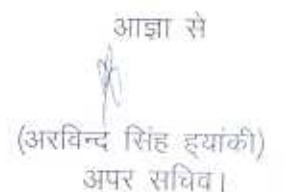 आज्ञा से
(अरविन्द सिंह ह्यांकी)
अपर सचिव।